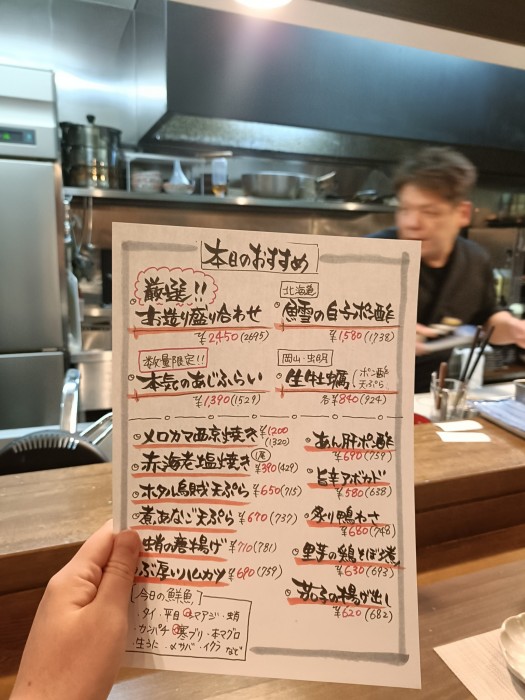 本日のおすすめ
厳選!!
お造り盛り合わせ
¥2450(2695)
数量限定!!
本気のあじふらい
¥1,390(1529)
北海道
鱈の白子ポン酢
¥1580(1738)
岡山・虫明
生牡蠣 ポン酢
天ぷら
各¥840(924)
メロカマ西京焼き ¥1200
(1320)
赤海老塩焼き 1尾 ¥390(429)
ホタル烏賊天ぷら ¥650(715)
煮あなご天ぷら ¥670(737)
蛸の唐揚げ ¥710(781)
ぶ厚いハムカツ ¥690(759)
あん肝ポン酢
¥690(759)
旨辛アボカド
¥580(638)
炙り鴨わさ
¥680(748)
里芋の鶏そぼろ煮
¥630(693)
茄子の揚げ出し
¥620(682)
今日の鮮魚
・タイ・平目・シマアジ・蛸
・カンパチ・寒ブリ・本マグロ
・生うに・〆サバ・イクラ など